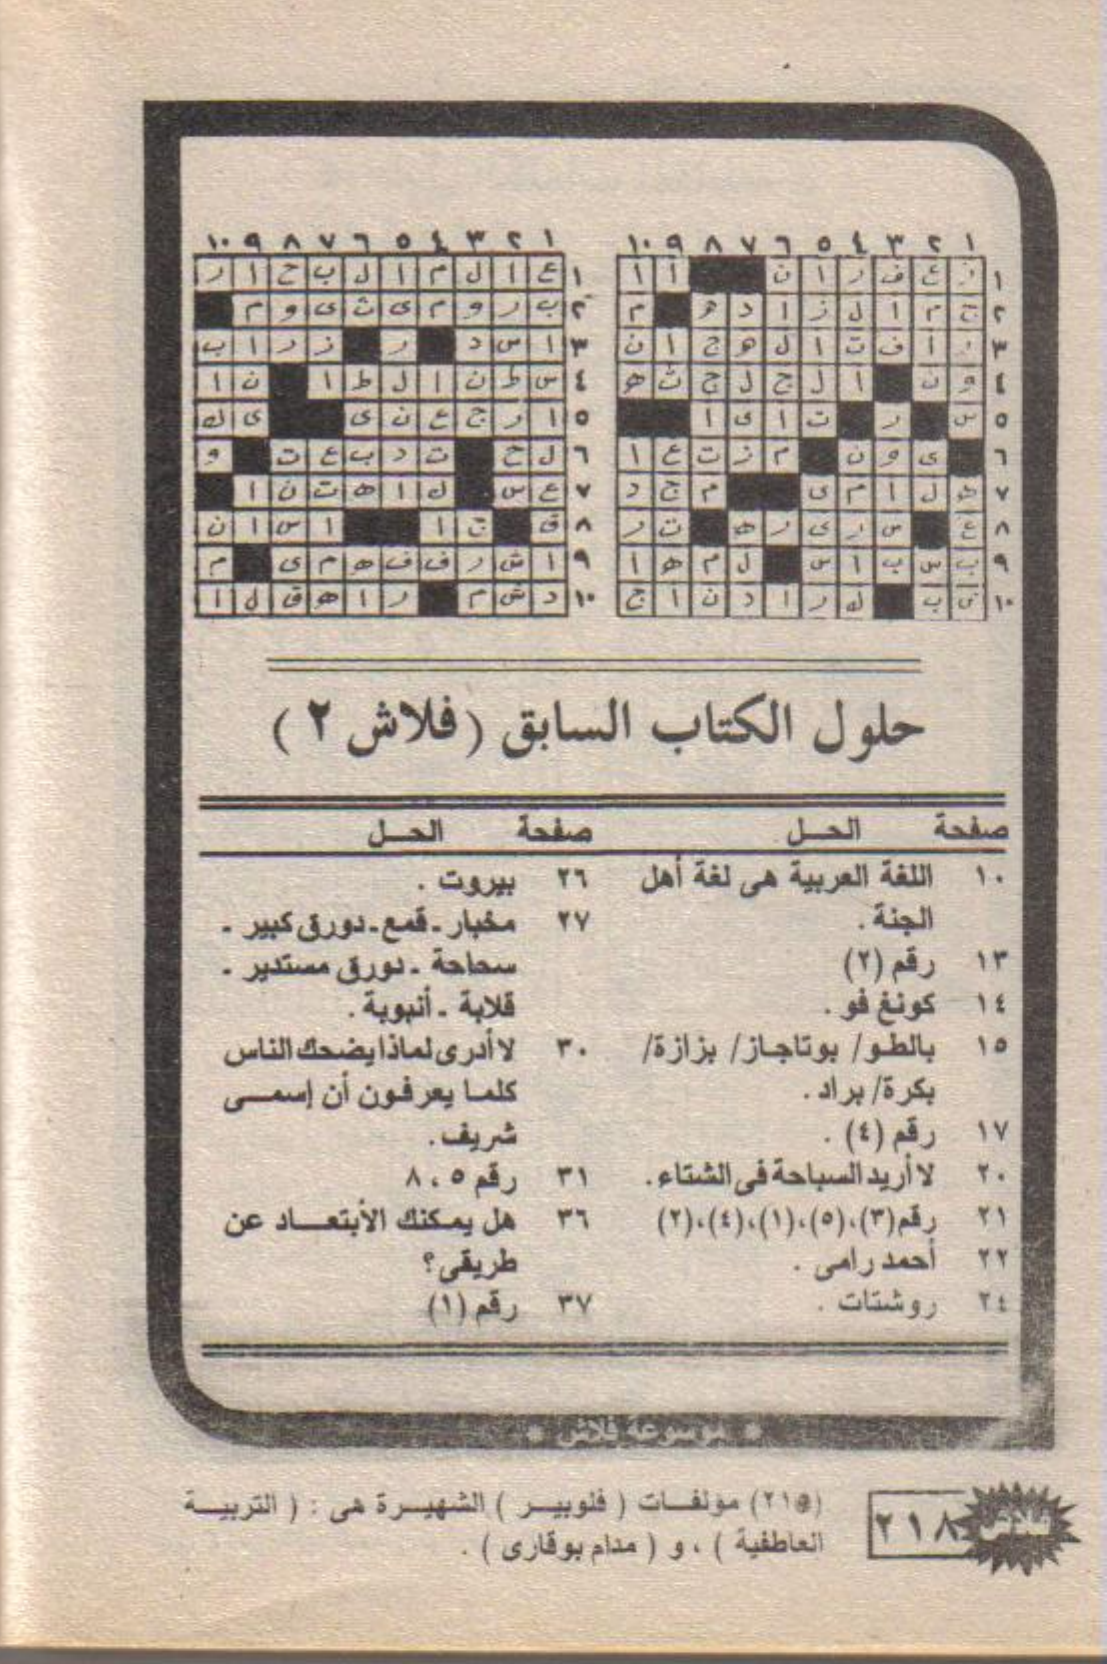 ١ ٢ ٣ ٤ ٥ ٦ ٧ ٨ ٩ ١٠
١ ز ع ف ر ا ن ا ا
٢ ج م ا ل ز ا د ه م
٣ ر ا ف ت ا ل ه ج ا ن
٤ و ن ا ل ج ل ج ث ه
٥ س ر ت ا ى ا
٦ ى و ن م ز ت ع ا
٧ ه ل ا م ى م ج د
٨ ع س ر ى ر ه ت ر
٩ ب س ب ا س ل م ه ا
١٠ ب ك ر ا د ن ا ج
١ ٢ ٣ ٤ ٥ ٦ ٧ ٨ ٩ ١٠
١ ع ا ل م ا ل ب ح ا ر
٢ ب ر و م ى ث ى و م
٣ ا س د ر ز ر ا ب
٤ س ط ن ا ل ط ا ن ا
٥ ا ر ج ع ن ى ى ك
٦ ل ح ت د ب ع ت و
٧ ع س ك ا ه ت ن ا
٨ ق ج ا ا س ا ن
٩ ا ش ر ف ف ه م ى م
١٠ د ش م ر ا ه ق ل ا
حلول الكتاب السابق (فلاش ٢)
صفحة الحـــل
١٠ اللغة العربية هى لغة أهل
الجنة.
١٣ رقم (٢)
١٤ كونغ فو.
١٥ بالطو/ بوتاجاز/ بزازة/
بكرة/ براد.
١٧ رقم (٤).
٢٠ لا أريد السباحة فى الشتاء.
٢١ رقم(٣)،(٥)،(١)،(٤)،(٢)
٢٢ أحمد رامى.
٢٤ روشتات.
صفحة الحـــل
٢٦ بيروت.
٢٧ مخبار ـ قمع ـ دورق كبير ـ
سحاحة ـ دورق مستدير ـ
قلابة ـ أنبوبة.
٣٠ لا أدرى لماذا يضحك الناس
كلمـا يعرفـون أن إسمــى
شريف.
٣١ رقم ٥ ، ٨
٣٦ هل يمكنك الأبتعـــاد عن
طريقى؟
٣٧ رقم (١)
* موسوعة فلاش *
مؤلفــات ( فلوبيــر ) الشهيــرة هى : ( التربيــة
العاطفية ) ، و ( مدام بوڤارى ) .
٢١٨